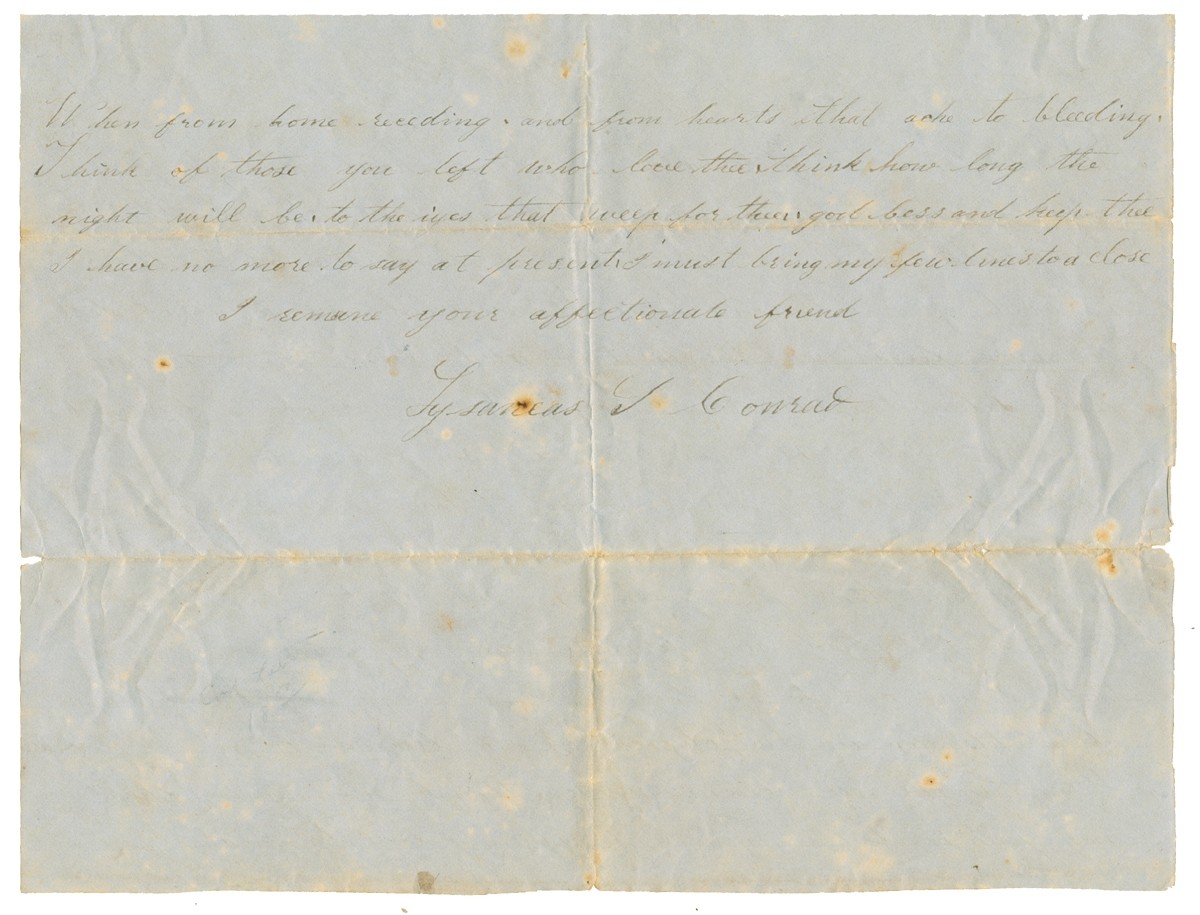 When from home receeding. and from hearts that ache to bleeding.
Think of those you left who love thee. think how long the
night will be. to the iyes that weep for thee. god bess and keep thee
I have no more to say at present. I must bring my few lines to a close
I remane your affectionate friend
S Conrad